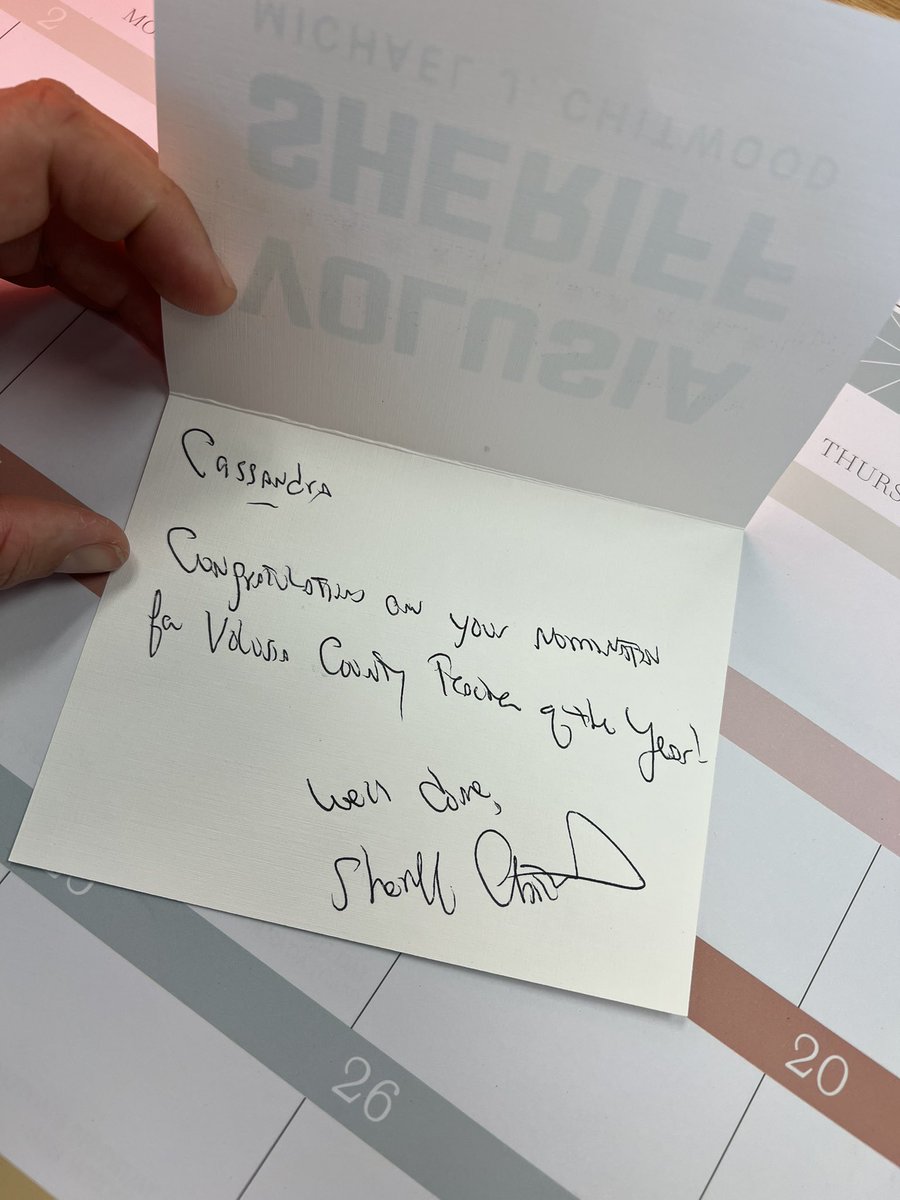 MICHAEL J. CHITWOOD
SHERIFF
VOLUSIA
Cassandra
Congratulations on your nomination
for Volusia County Teacher of the Year!
Well done,
Sheriff Chitwood
2
MO
THURS
26
20